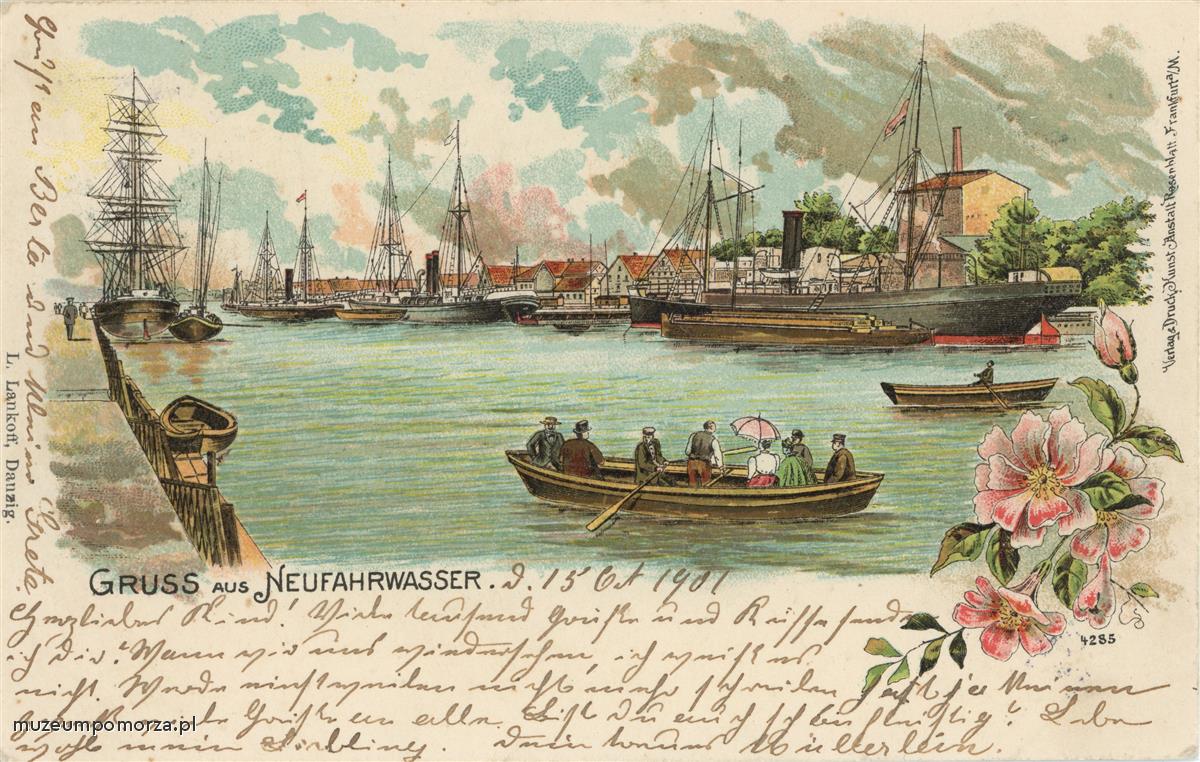 GRUSS AUS NEUFAHRWASSER. d. 15 Oct 1901
Herzliebes Kind! Viele tausend Grüße und Küsse sende
ich dir! Wann wir uns wiedersehen, ich weiß es
nicht. Werde einstweilen nicht mehr schreiben,
Grüße an alle. Bist du auch schön fleißig? Lebe
wohl mein Liebling. Dein treues Mütterlein.
Grüß an Berta und Klein Grete
L. Lankoff, Danzig.
Verlag & Druck, Kunst-Anstalt Rosenblatt, Frankfurt a/M.
4285
muzeumpomorza.pl